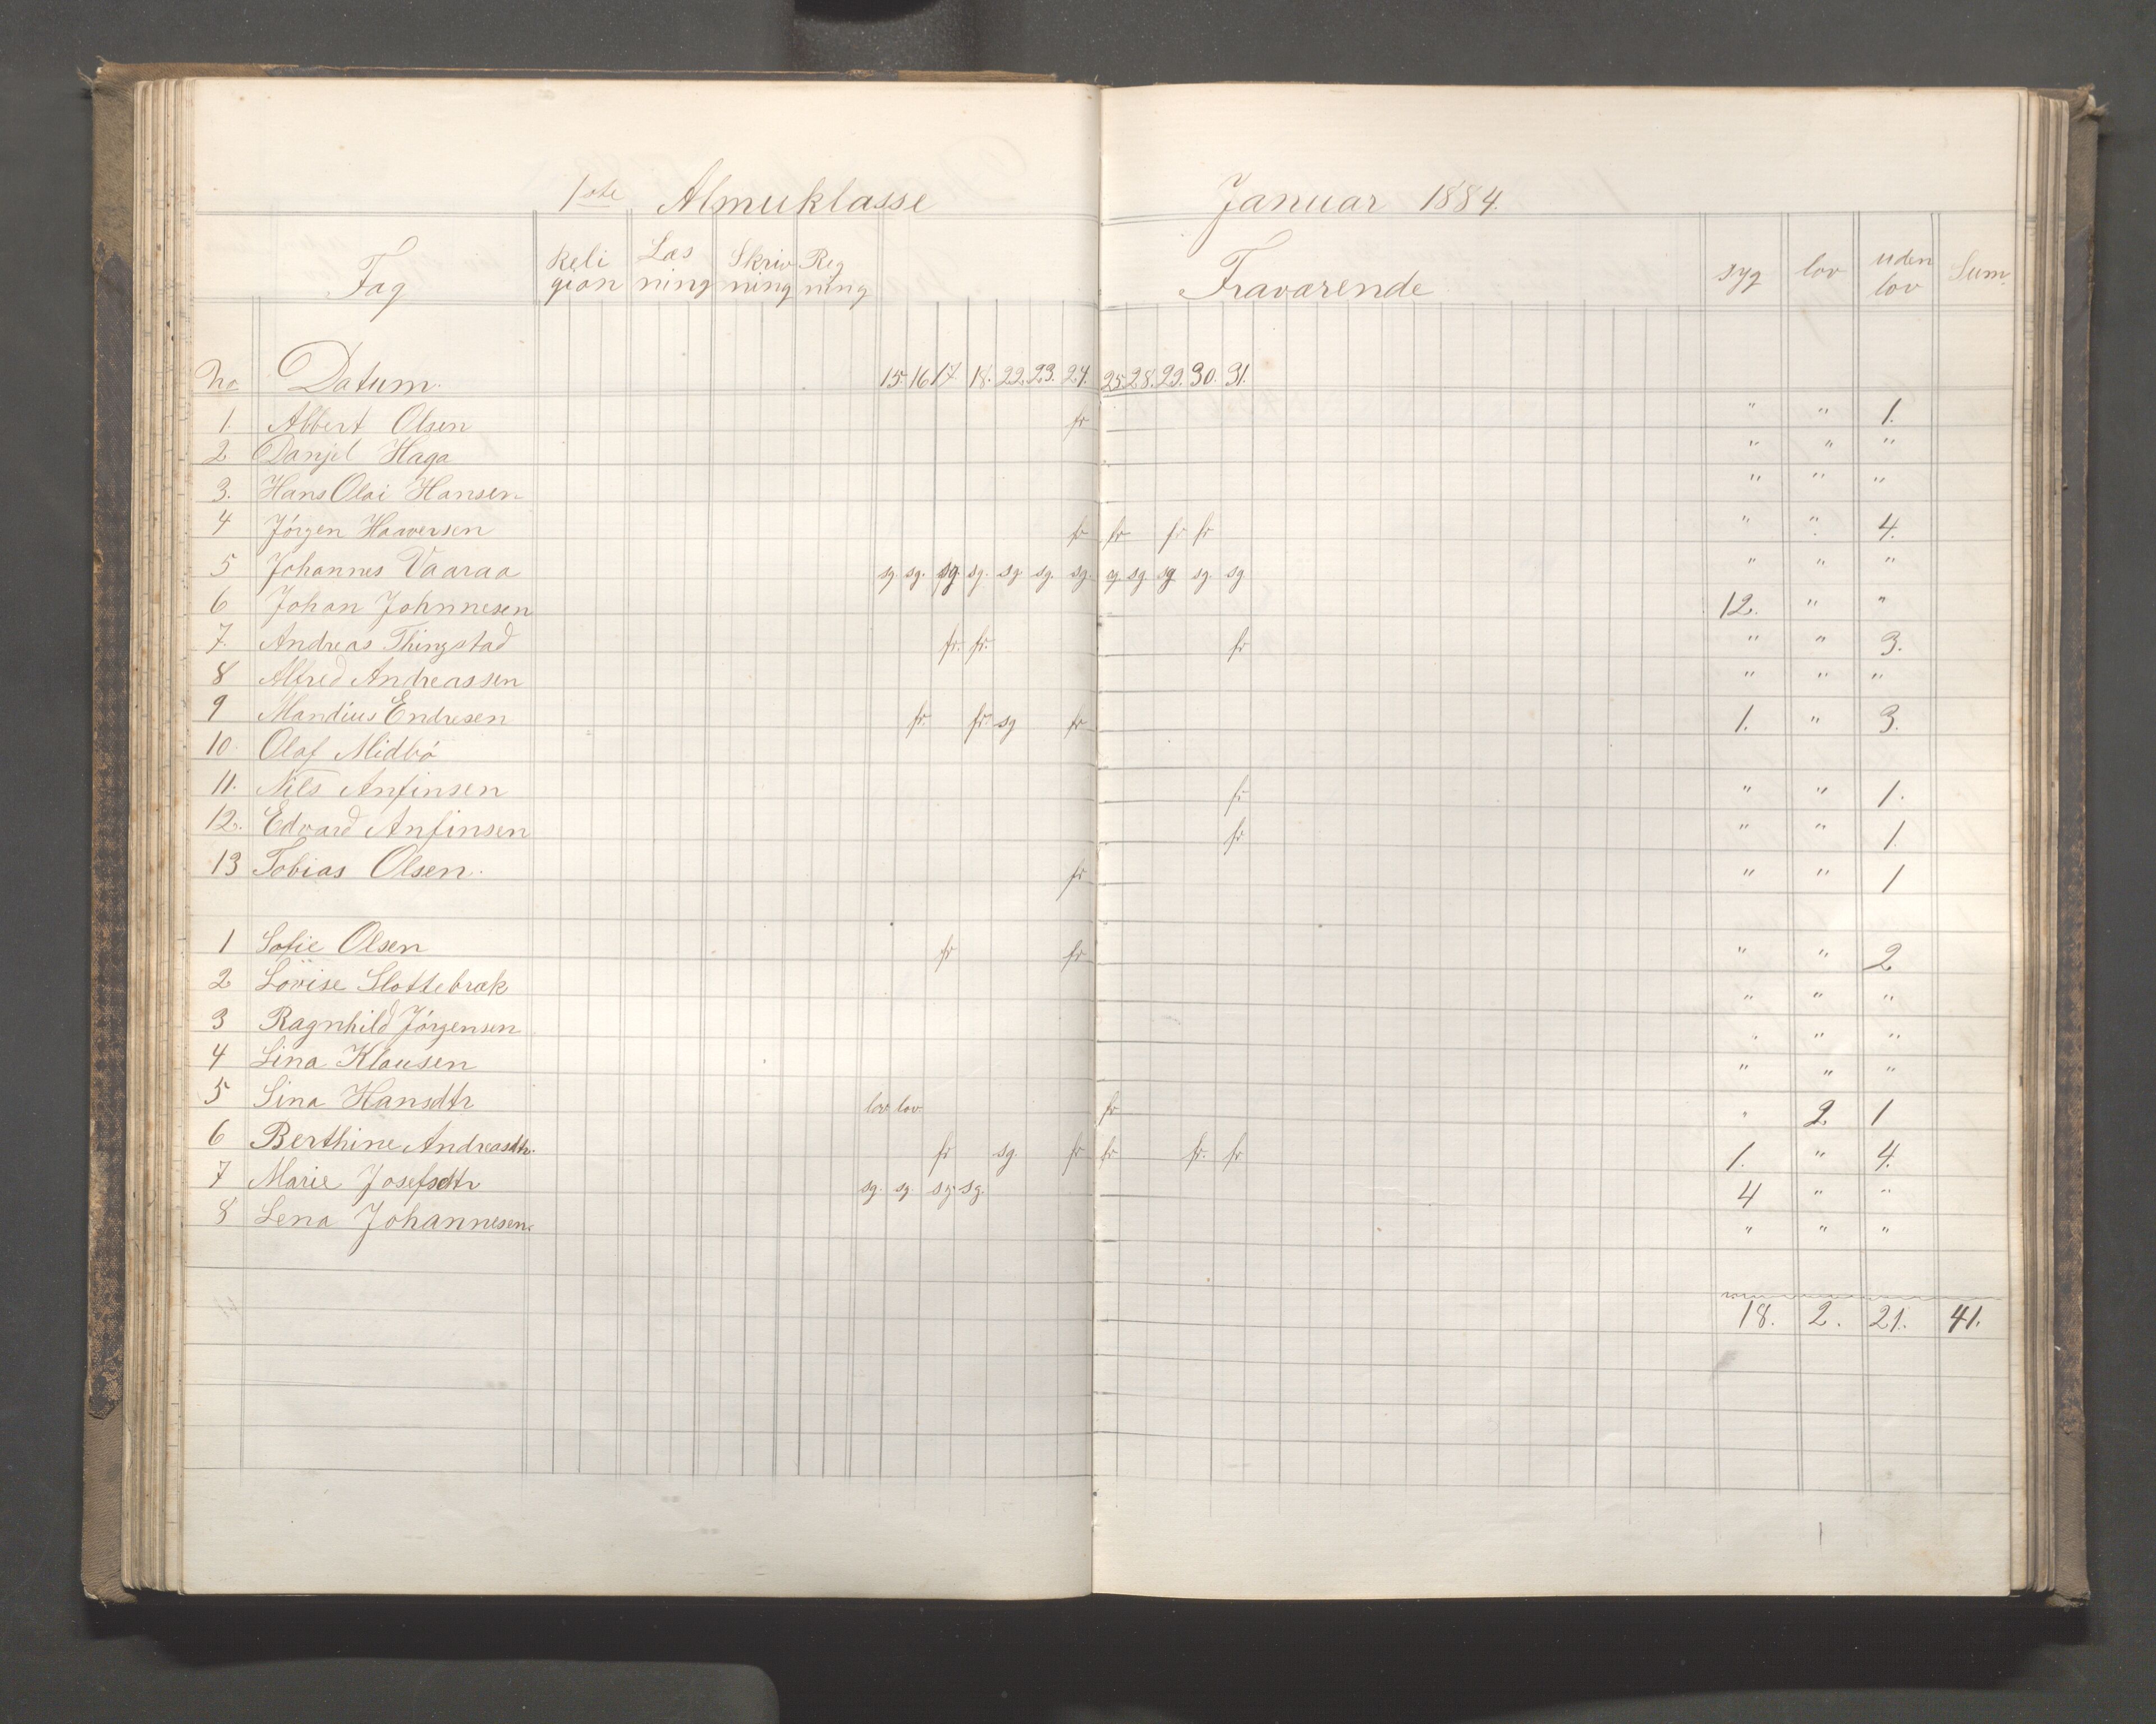 1ste Almuklasse Januar 1884.
Fag Religion Læsning Skrivning Regning Fraværende syg lov uden lov Sum.
No Datum. 15. 16 17 18. 22. 23. 24. 25. 28. 29. 30. 31.
1. Albert Olsen fr " " 1.
2 Danjel Haga " " "
3. Hans Olai Hansen " " "
4 Jörgen Hawersen fr fr fr fr " " 4.
5 Johannes Vaaraa sg. sg. sg. sg. sg sg. sg. sg. sg. sg sg. sg " " "
6 Johan Johnnesen 12. " "
7. Andreas Thingstad fr. fr. fr " " 3.
8 Alfred Andreassen " " "
9 Mandius Endresen fr. fr. sg fr 1. " 3.
10. Olaf Midbö
11. Nils Anfinsen fr " " 1.
12. Edvard Anfinsen fr " " 1.
13 Tobias Olsen. fr " " 1
1 Sofie Olsen fr fr " " 2
2 Lovise Slottebrak " " "
3 Ragnhild Jörgensen " " "
4 Lina Klausen " " "
5 Sina Hansdtr lov lov fr " 2 1
6 Berthine Andreasdtr. fr sg. fr fr fr. fr 1. " 4.
7 Marie Josefsdtr sg. sg. sg. sg. 4 " "
8 Lena Johannesen. " " "
18. 2. 21. 41.